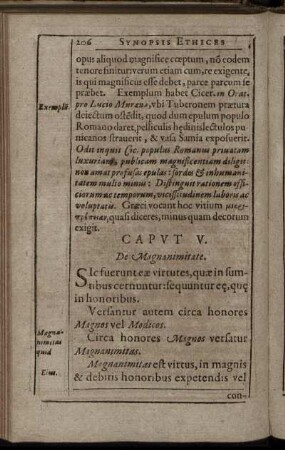 206 SYNOPSIS ETHICES
opus aliquod magnifice cœptum, nō codem
tenore finitur: verum etiam cum, re exigente,
is qui magnificus esse debet, parce parcum se
præbet. Exemplum habet Cicer. in Orat.
Exemplū.
pro Lucio Muræna, vbi Tuberonem prætura
deiectum ostēdit, quod dum epulum populo
Romano daret, pelliculis hædinis lectulos pu-
nicanos strauerit, & vasa Samia exposuerit.
Odit inquit Cic. populus Romanus priuatam
luxuriam, publicam magnificentiam diligit:
non amat profusas epulas: sordes & inhumani-
tatem multo minus: Distinguit rationem offi-
ciorum ac temporum, vicissitudinem laboris ac
voluptatis. Græci vocant hoc vitium
quasi diceres, minus quam decorum
exigit.
CAPVT V.
De Magnanimitate.
SIc fuerunt eæ virtutes, quæ in sum-
tibus cernuntur: sequuntur eę, quę
in honoribus.
Versantur autem circa honores
Magnos vel Modicos.
Magna-
nimitas
quid
Circa honores Magnos versatur
Magnanimitas.
Magnanimitas est virtus, in magnis
& debitis honoribus expetendis vel
con-